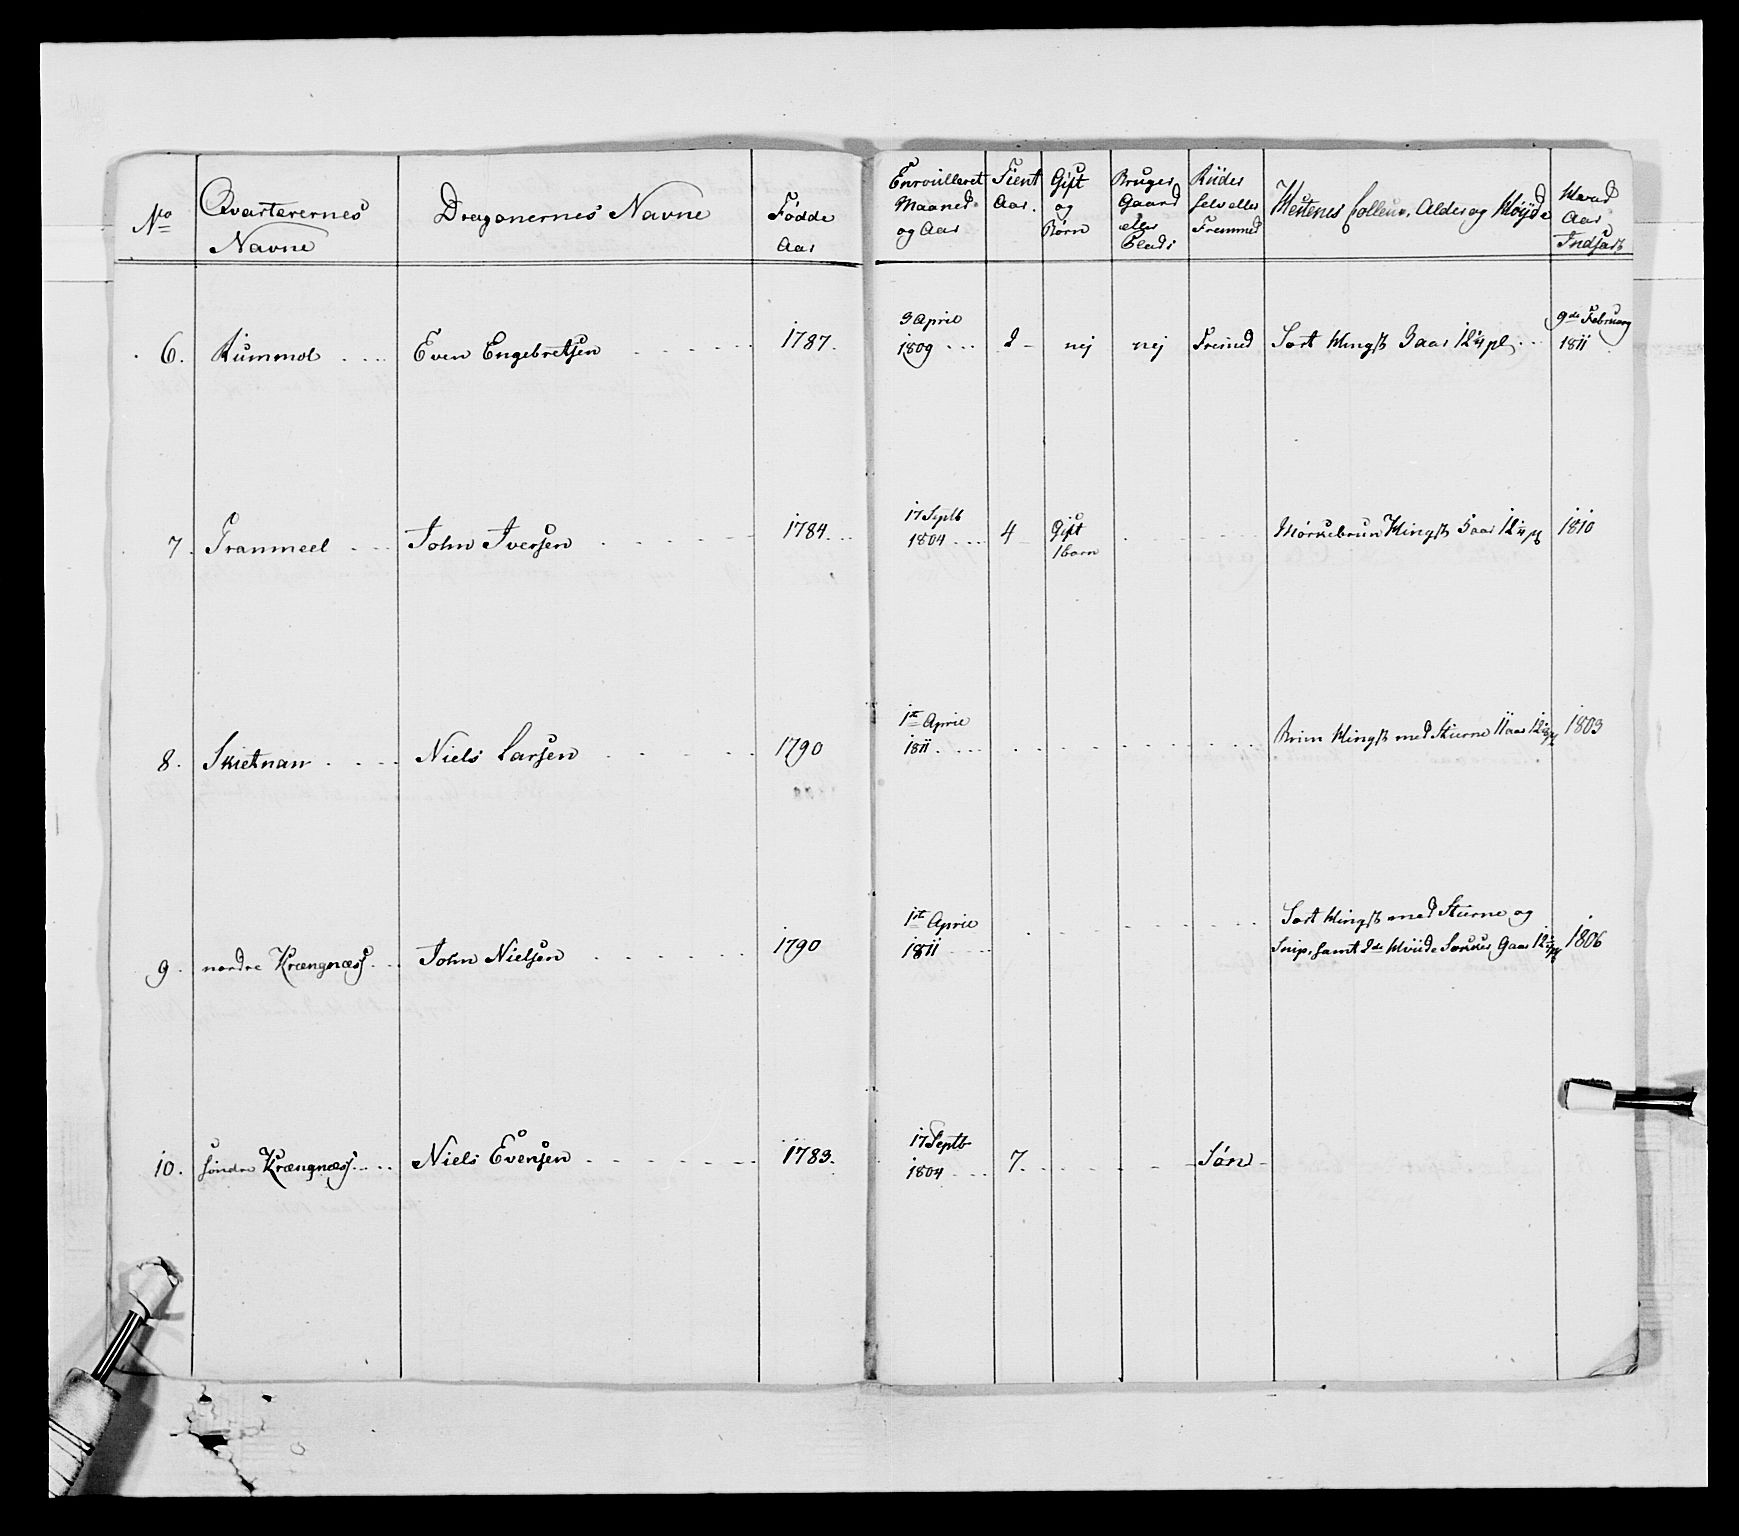 No
Qvarterernes
Navne
Dragonernes Navne
Fødde
Aar
Enroulleret
Maaned
og Aar
Tient
Aar.
Gift
og
Børn
Bruger
Gaard
eller
Plads
Riider
selv eller
Fremmed
Hestenes Colleur, Alder og Høyde
Hvad
Aar
Indsadt
6. Rummol Even Engebretsen 1787. 3 April 1809 2 nej nej Fremd Sort Hingst 3 aar 12 pl 9de Februarg 1811
7. Grammeel John Iversen 1784. 17 Septb 1804 4 Gift 1 barn Mørkebrun Hingst 5 aar 12 1810
8. Skietnan Niels Larsen 1790 1st April 1811 Hingst med Stierne 11 aar 12 1803
9. nordre Krængnæss John Nielsen 1790 1st April 1811 Sort Hingst med Stierne og
Snip, samt 2de Hviide Sokker 9 aar 12 1806
10. søndre Krængnæss Niels Evensen 1783. 17 Septb 1804 7. Søn